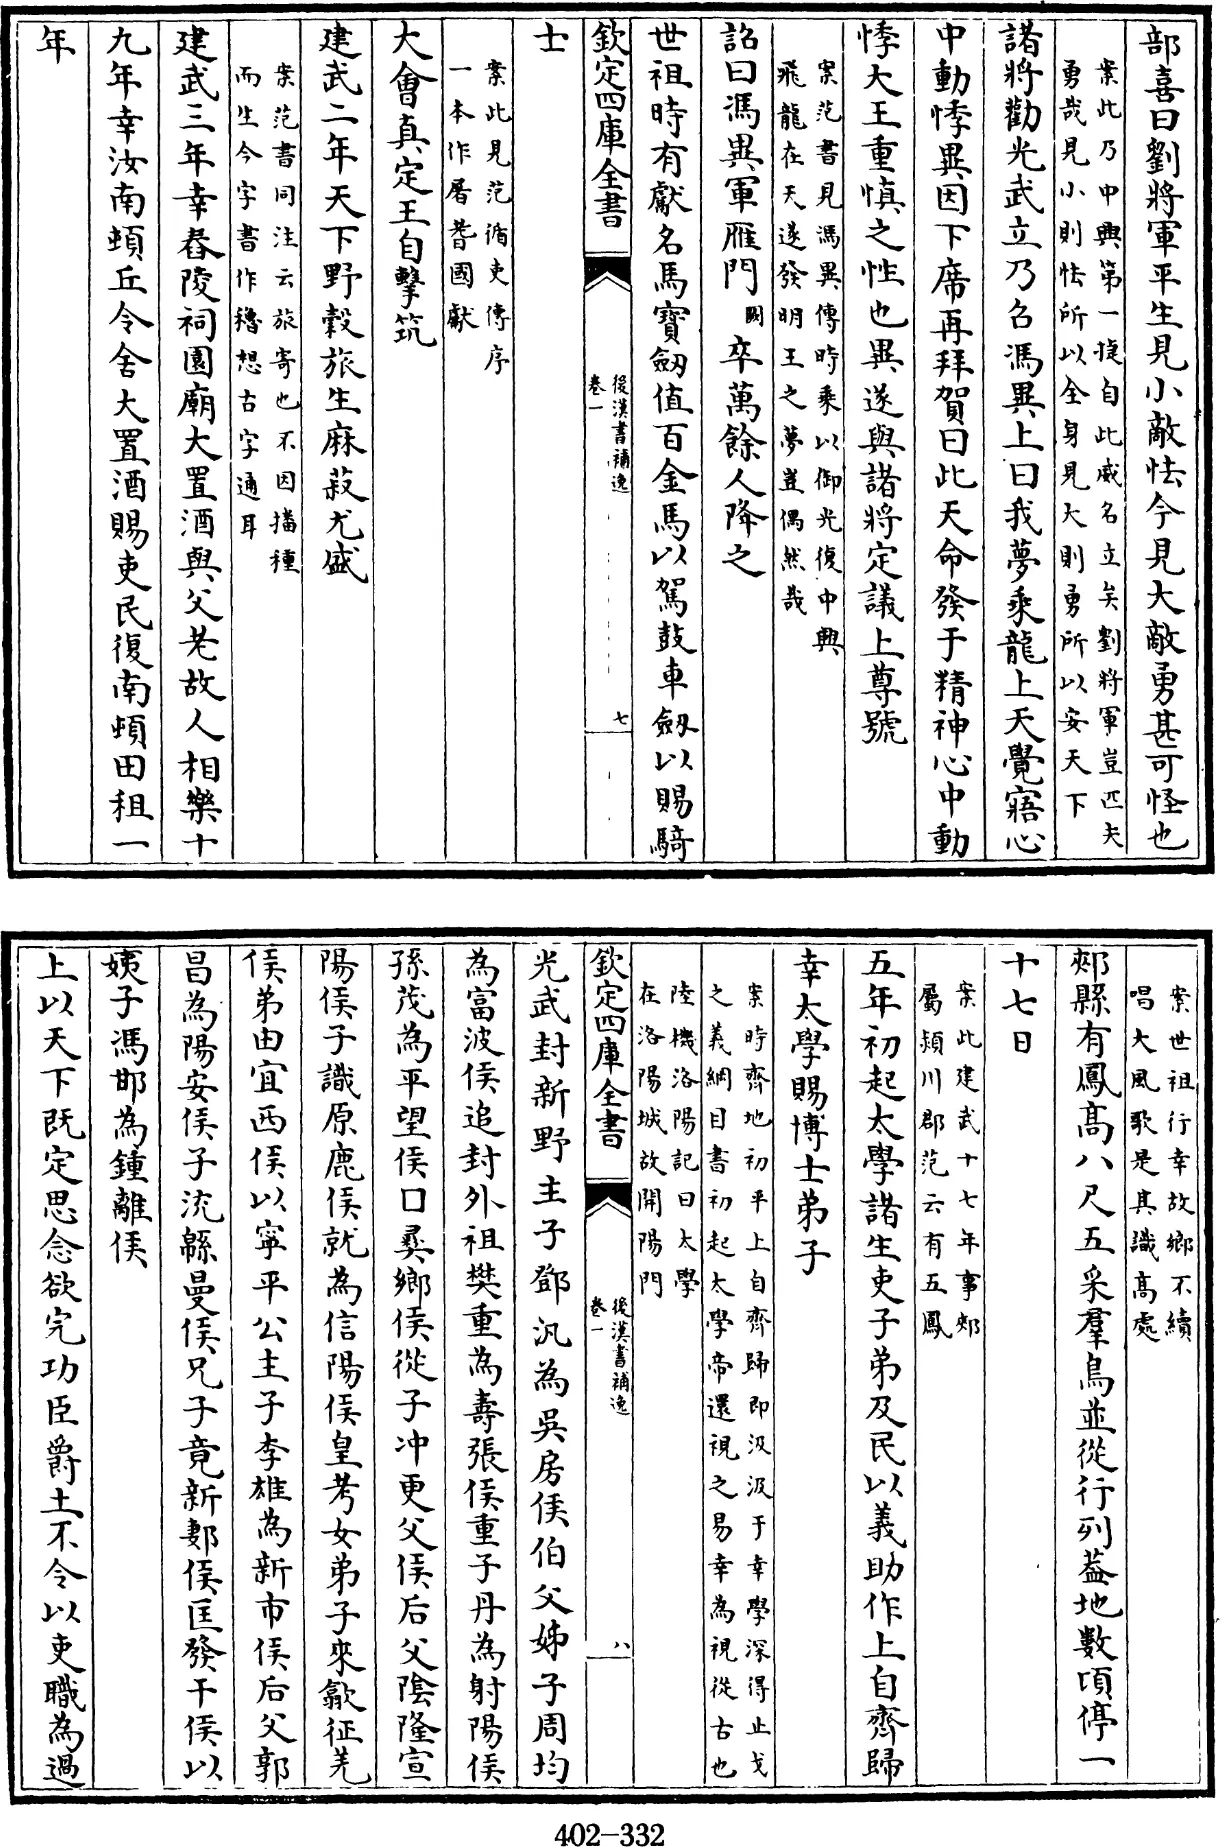 部喜曰劉將軍平生見小敵怯今見大敵勇甚可怪也
案此乃中興第一捷自此威名立矣劉將軍豈匹夫
勇哉見小則怯所以全身見大則勇所以安天下
諸將勸光武立乃召馮異上曰我夢乘龍上天覺寤心
中動悸異因下席再拜賀曰此天命發于精神心中動
悸大王重慎之性也異遂與諸將定議上尊號
案范書見馮異傳時乘以御光復中興
飛龍在天遂發明王之夢豈偶然哉
詔曰馮異軍雁門闕卒萬餘人降之
世祖時有獻名馬寶劒值百金馬以駕鼓車劒以賜騎
欽定四庫全書
後漢書補逸
卷一
七
士
案此見范循吏傳序
一本作屠耆國獻
大會真定王自擊筑
建武二年天下野穀旅生麻菽尤盛
案范書同注云旅寄也不因播種
而生今字書作穭想古字通耳
建武三年幸舂陵祠園廟大置酒與父老故人相樂十
九年幸汝南頓丘令舍大置酒賜吏民復南頓田租一
年
案世祖行幸故鄉不續
唱大風歌是其識高處
郟縣有鳳高八尺五采羣鳥並從行列葢地數頃停一
十七日
案此建武十七年事郟
屬潁川郡范云有五鳳
五年初起太學諸生吏子弟及民以義助作上自齊歸
幸太學賜博士弟子
案時齊地初平上自齊歸即汲汲于幸學深得止戈
之義綱目書初起太學帝還視之易幸為視從古也
陸機洛陽記曰太學
在洛陽城故開陽門
欽定四庫全書
後漢書補逸
卷一
八
光武封新野主子鄧汎為吳房侯伯父姊子周均
為富波侯追封外祖樊重為壽張侯重子丹為射陽侯
孫茂為平望侯口彞鄉侯從子冲更父侯后父陰隆宣
陽侯子識原鹿侯就為信陽侯皇考女弟子來歙征羌
侯弟由宜西侯以寧平公主子李雄為新市侯后父郭
昌為陽安侯子流緜曼侯兄子竟新郪侯匡發干侯以
姨子馮邯為鍾離侯
上以天下既定思念欲完功臣爵土不令以吏職為過
402-332